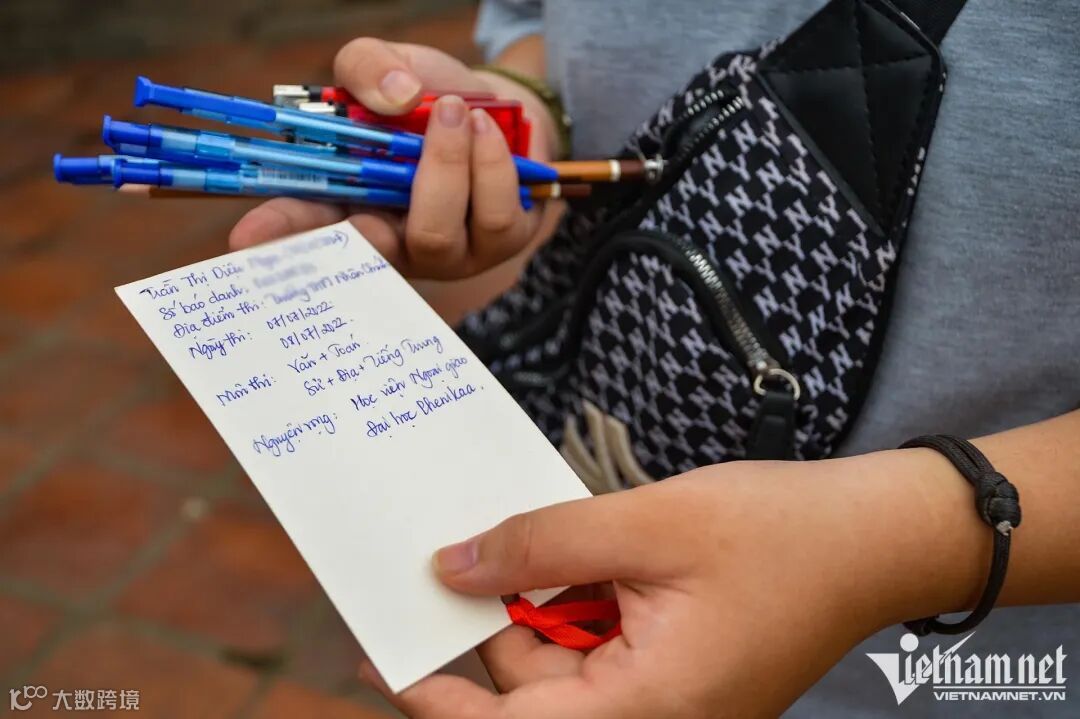 Trần Thị Diệu
Số báo danh:
Địa điểm thi: Trường THPT Nhân Chính
Ngày thi: 07/07/2022
08/07/2022.
Môn thi: Văn + Toán
Sử + Địa + Tiếng Trung
Nguyện vọng: Học viện Ngoại giao
Đại học Phenikaa.
NY
Vietnam net
VIETNAMNET.VN
大数跨境